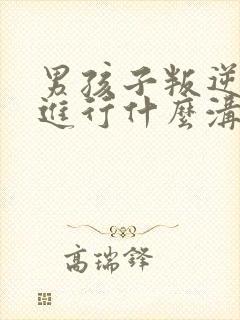 男孩子叛逆
進行什麼溝
高瑞鋒